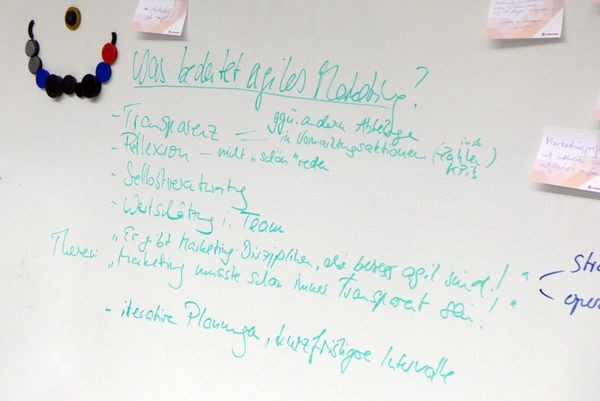 Was bedeutet agiles Marketing?
- Transparenz — ggü. anderen Abteilungen
in Vermarktungsaktionen (Zahlen
KPIs
- Reflexion — nicht "schön" reden
- Selbstverantwortung
- Wertschätzung i. Team
Thesen: "Es gibt Marketing-Disziplinen, die besser agil sind!"
"Marketing musste schon immer Transparent sein!"
- iterative Planungen, kurzfristigere Intervalle
Stra
oper